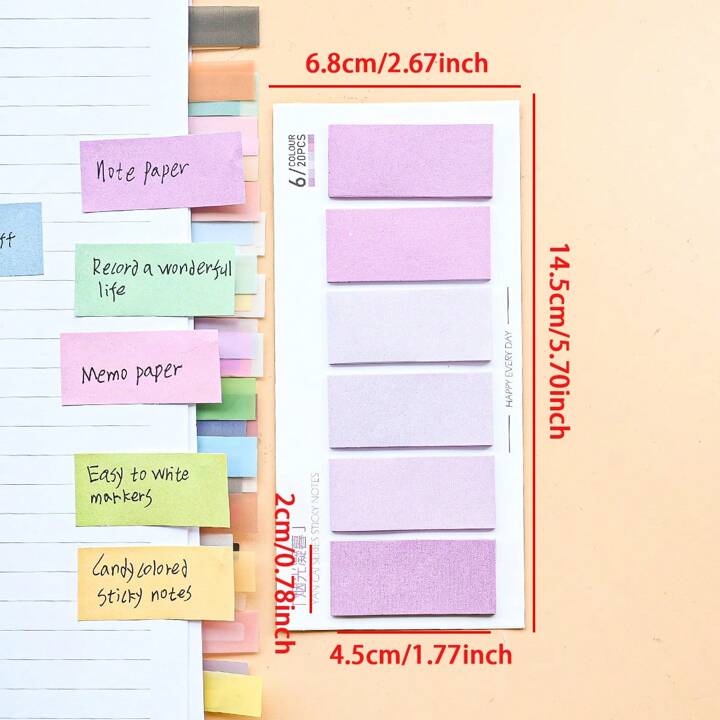 6.8cm/2.67inch
6/COLOUR
20PCS
Note paper
ff
Record a wonderful
life
Memo paper
Easy to write
markers
Candy colored
Sticky notes
HAPPY EVERY DAY
14.5cm/5.70inch
2cm/0.78inch
「烟光凝暮」
YAN CAI SERIES STICKY NOTES
4.5cm/1.77inch